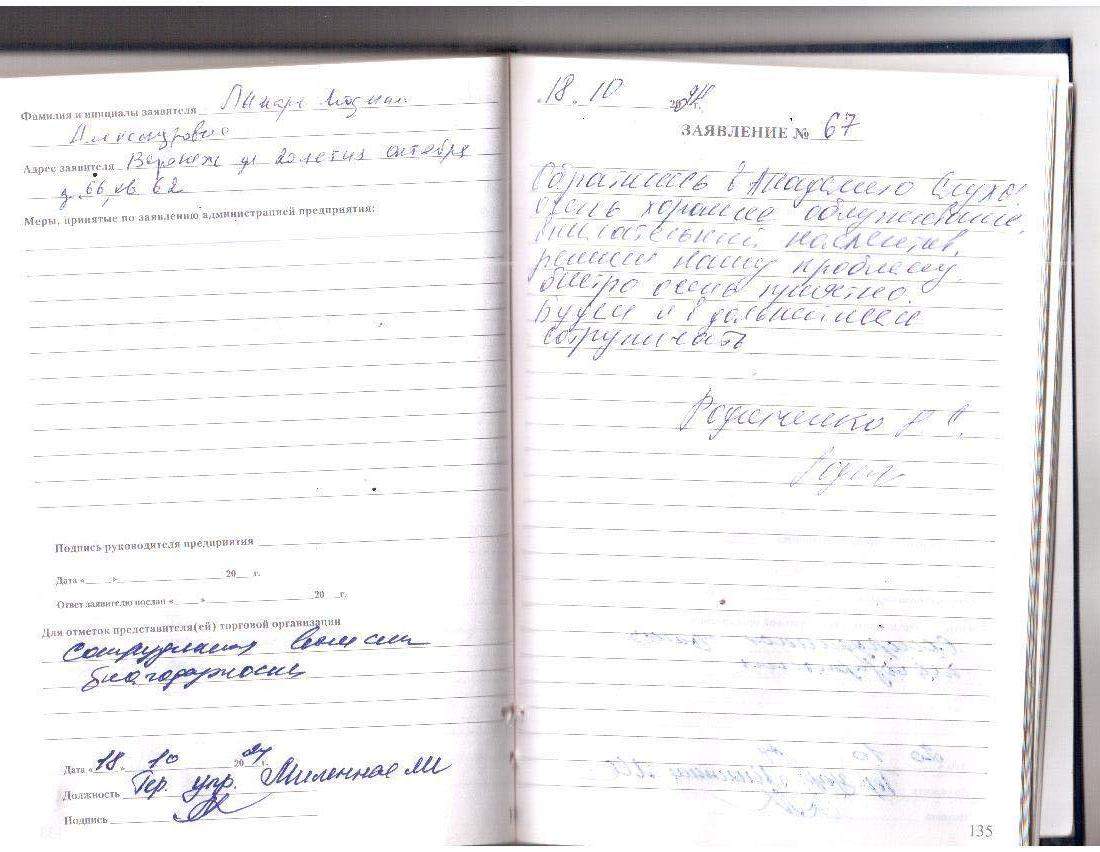 Фамилия и инициалы заявителя
Александровна
Адрес заявителя Воронеж ул 20 летия октября
д. 66, кв 62
Меры, принятые по заявлению администрацией предприятия:
Подпись руководителя предприятия
Дата « » 20 г.
Ответ заявителю послан « » 20 г.
Для отметок представителя(ей) торговой организации
сотрудникам
благодарность
Дата «18» 10 2024г.
Должность Тер. упр.
Подпись
18. 10 2024г.
ЗАЯВЛЕНИЕ № 67
Обратились в Академию Слуха.
очень хорошее
внимательный
решили нашу проблему.
быстро очень приятно.
Будем и в дальнейшем
135